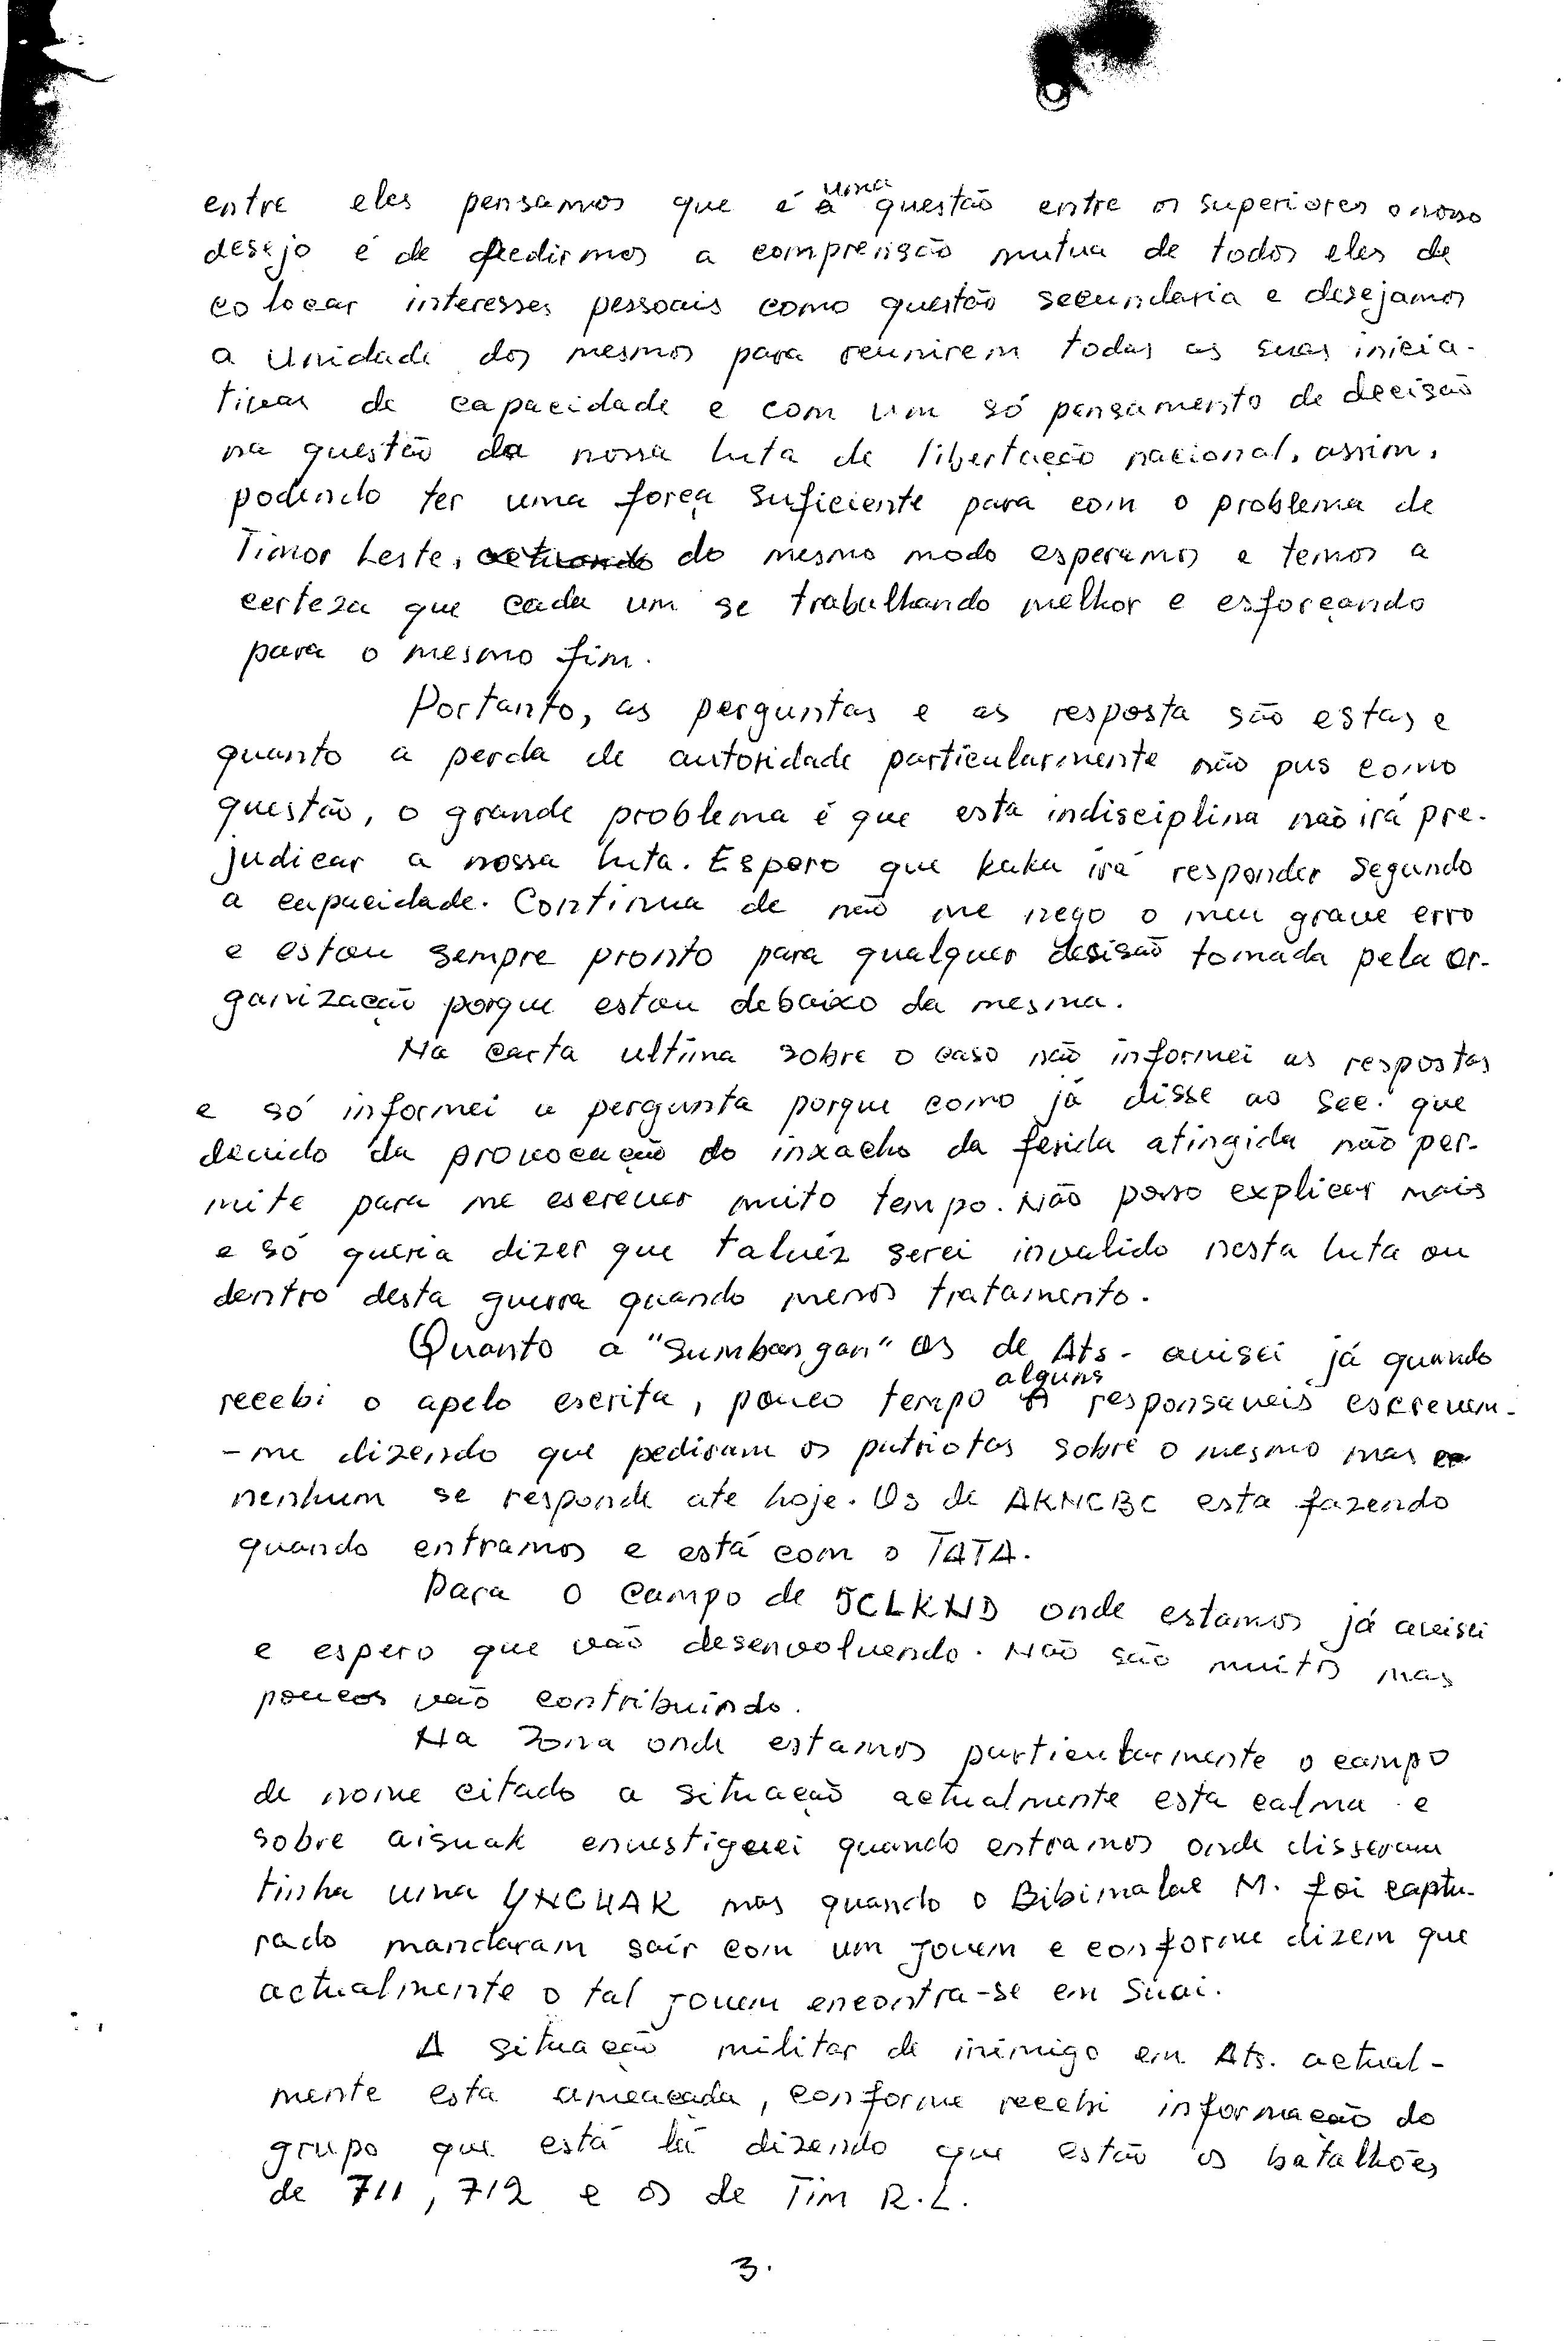 entre eles pensamos que é uma questão entre os superiores o nosso
desejo é de pedirmos a comprensão mutua de todos eles de
colocar interesses pessoais como questão secundaria e desejamos
a Unidade dos mesmos para reunirem todas as suas inicia-
tivas de capacidade e com um só pensamento de decisão
na questão da nossa luta de libertação nacional, assim,
podendo ter uma força suficiente para com o problema de
Timor Leste, do mesmo modo esperamos e temos a
certeza que cada um se trabalhando melhor e esforçando
para o mesmo fim.
Portanto, as perguntas e as resposta são estas e
quanto a perda de autoridade particularmente não pus como
questão, o grande problema é que esta indisciplina não irá pre-
judicar a nossa luta. Espero que kaka irá responder segundo
a capacidade. Continua de não me nego o meu grave erro
e estou sempre pronto para qualquer desisão tomada pela or-
ganização porque estou debaixo da mesma.
Na carta ultima sobre o caso não informei as respostas
e só informei a pergunta porque como já disse ao Sec. que
devido da provocação do inxacho da ferida atingida não per-
mite para me escrever muito tempo. Não posso explicar mais
e só queria dizer que talvéz serei invalido nesta luta ou
dentro desta guerra quando menos tratamento.
Quanto a "Sumbangan" os de Ats. avisei já quando
recebi o apelo escrita, pouco tempo alguns responsaveis escrevem-
-me dizendo que pediram os patriotas sobre o mesmo mas
nenhum se responde ate hoje. Os de AKNCBC esta fazendo
quando entramos e está com o TATA.
Para o campo de JCLKND onde estamos já avisei
e espero que vão desenvolvendo. Não são muitos mas
poucos vão contribuindo.
Na Zona onde estamos particularmente o campo
de nome citado a situação actualmente esta calma e
sobre aisuak envestigerei quando entramos onde disseram
tinha uma YNGUAK mas quando o Bibimalae M. foi captu-
rado mandaram sair com um jovem e conforme dizem que
actualmente o tal jovem encontra-se em Suai.
A situação militar de inimigo em Ats. actual-
mente esta ameaçada, conforme recebi informação do
grupo que está lá dizendo que estão os batalhões
de 711, 712 e os de Tim R.L.
3.